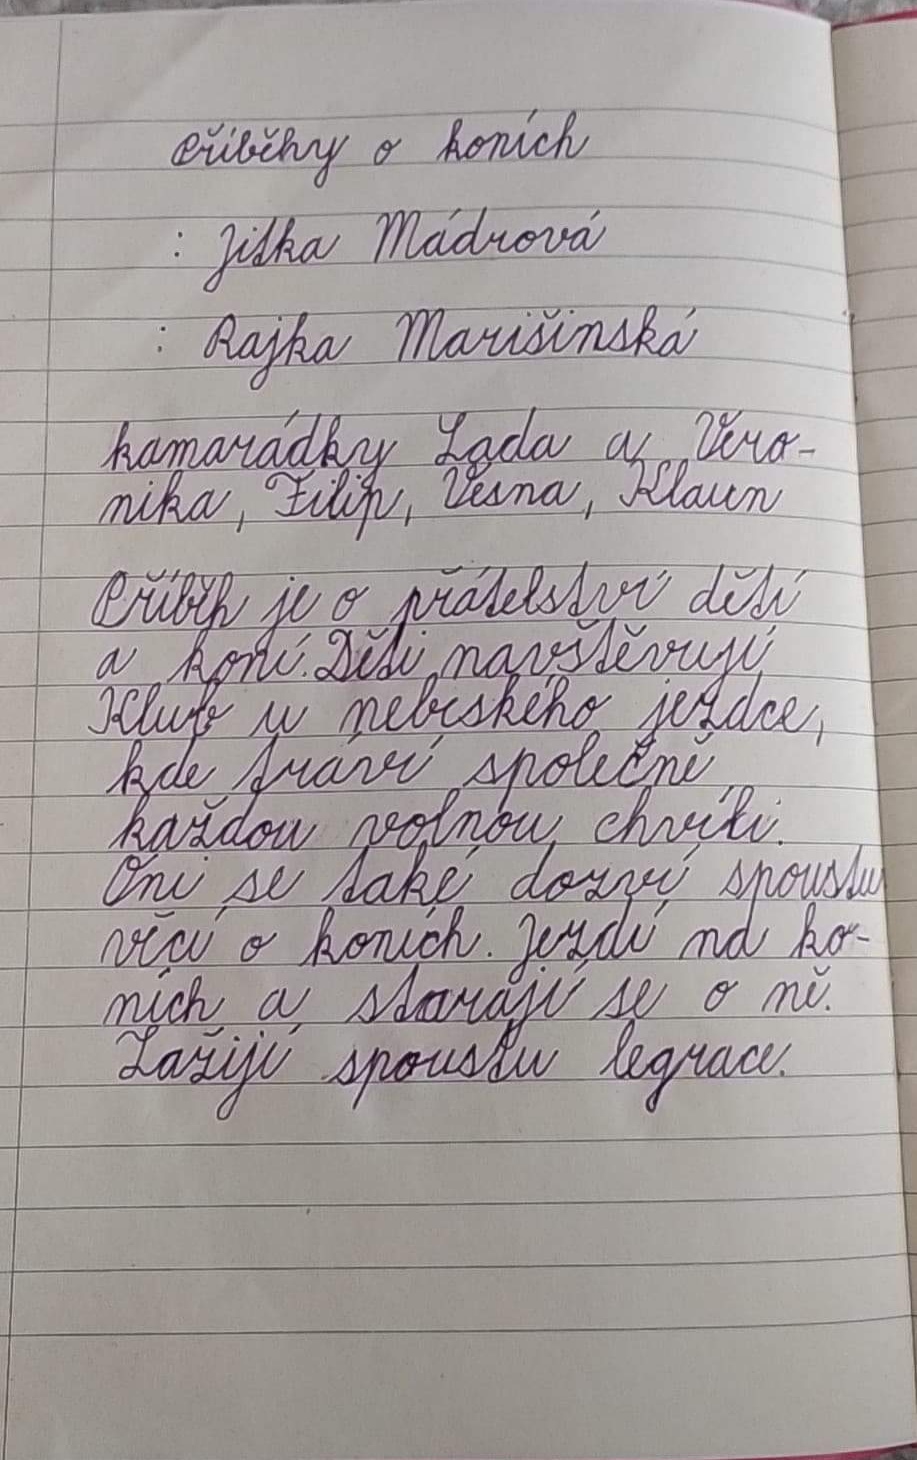 Příběhy o koních
: Jitka Mádrová
: Rajka Marišinská
kamarádky Lada a Vero-
nika, Filip, Vesna, Klaun
Příběh je o přátelství dětí
a koní. Děti navštěvují
Klub u nebeského jezdce,
kde tráví společně
každou volnou chvíli.
Oni se také dozví spoustu
věcí o koních. Jezdí na ko-
ních a starají se o ně.
Zažijí spoustu legrace.